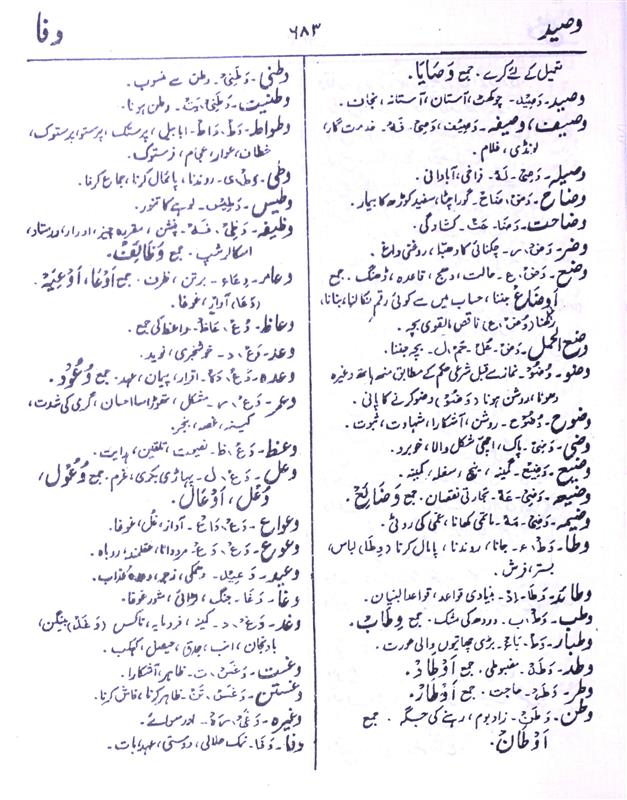 وصید
۶۸۳
وفا
تعمیل کے لئے کرے۔ جمع وَصَایَا۔
وصید۔ وَصِیْد۔ چوکھٹ، آستان، آستانہ،
وصیف، وصیفہ۔ وَصِیْف، وَصِیْ۔ فَہ۔ خدمت گار،
لونڈی، غلام۔
وصیلہ۔ وَصِیْ۔ لَہ۔ فراخی، آبادانی۔
وضاح۔ وَضْ، ضَاح۔ گورا چٹا، سفید کوڑھ کا بیمار۔
وضاحت۔ وَضَا۔ حَت۔ کشادگی۔
وضر۔ وَضَ، ر۔ چکنائی کا دھبّا، روغنی داغ۔
وضع۔ وَضْ، ع۔ حالت، دھج، قاعدہ، ڈھنگ۔ جمع
اَوْضَاع۔ جننا، حساب میں سے کوئی رقم نکالنا، بنانا،
رکھنا (وُضْ، ع) ناقص القویٰ بچہ۔
وضع الحمل۔ وَضْ۔ عُل۔ حَمْ، ل۔ بچہ جننا۔
وضو۔ وُضُوْ۔ نماز سے قبل شرعی حکم کے مطابق منہ ہاتھ وغیرہ
دھونا، روشن ہونا (وَضُوْ) وضو کرنے کا پانی۔
وضوح۔ وُضُوْح۔ روشن، آشکارا، شہادت، ثبوت۔
وضی۔ وَضِیْ۔ پاک، اچھی شکل والا، خوبرو۔
وضیع۔ وَضِیْع۔ کمینہ، نیچ، سفلہ، کمینہ۔
وضیعہ۔ وَضِیْ۔ عَہ۔ تجارتی نقصان۔ جمع وَضَائِع۔
وضیمہ۔ وَضِیْ۔ مَہ۔ ماتمی کھانا، غمی کی روٹی۔
وطا۔ وَطْ، ء۔ جانا، روندنا، پامال کرنا (وِطَا) لباس،
بستر، فرش۔
وطائد۔ وَطَا۔ اِد۔ بنیادی قواعد، قواعد البنیان۔
وطب۔ وَطْ، ب۔ دودھ کی مشک۔ جمع وِطَاب۔
وطباء۔ وَطْ۔ بَاء۔ بڑی چھاتیوں والی عورت۔
وطد۔ وَطَد۔ مضبوطی۔ جمع اَوْطَاد۔
وطر۔ وَطَر۔ حاجت۔ جمع اَوْطَار۔
وطن۔ وَطَن۔ زاد بوم، رہنے کی جگہ۔ جمع
اَوْطَان۔
وطنی۔ وَطَنِیْ۔ وطن سے منسوب۔
وطنیت۔ وَطَنِیْ، یَت۔ وطن ہونا۔
وطواط۔ وَطْ، وَاط۔ ابابیل، پرستک، پرستو، پرستوک،
خطاف، عوار، زستوک۔
وطی۔ وَطْ، ی۔ روندنا، پائمال کرنا، جماع کرنا۔
وطیس۔ وَطِیْس۔ لوہے کا تنور۔
وظیفہ۔ وَظِیْ۔ فَہ۔ پنشن، مقررہ چیز، ادرار، ورستاد،
اسکالرشپ۔ جمع وَظَائِف۔
وعاء۔ وِعَاء۔ برتن، ظرف۔ جمع اَوْعَا، اَوْعِیَہ۔
(وَعَا) آواز، غوغا۔
وعاظ۔ وُعْ، عَاظ۔ واعظ کی جمع۔
وعد۔ وَعْ، د۔ خوشخبری، نوید۔
وعدہ۔ وَعْ، دَہ۔ اقرار، پیمان، عہد۔ جمع وُعُوْد۔
وعر۔ وَعْ، ر۔ مشکل، تھوڑا سا احسان، گرمی کی شدت،
کینہ، غصہ، بنجر۔
وعظ۔ وَعْ، ظ۔ نصیحت، تلقین، ہدایت۔
وعل۔ وَعْ، ل۔ پہاڑی بکری، غرم۔ جمع وُعُوْل،
وُعُل، اَوْعَال۔
وعواع۔ وَعْ، وَاع۔ آواز، غُل، غوغا۔
وعوع۔ وَعْ، وَع۔ مرد دانا، عقلمند، روباہ۔
وعید۔ وَعِیْد۔ دھمکی، زجر، وعدہ عذاب۔
وغا۔ وَغَا۔ جنگ، لڑائی، شور غوغا۔
وغد۔ وَغْ، د۔ کمینہ، فرومایہ، ناکس (وَغَدْ) بینگن،
بادنجان، انب،
وغست۔ وَغَسْ، ت۔ ظاہر، آشکارا۔
وغستن۔ وَغَسْ، تَن۔ ظاہر کرنا، فاش کرنا۔
وغیرہ۔ وَغَیْ، رَہ۔ اور سوائے۔
وفا۔ وَفَا۔ نمک حلالی، دوستی،